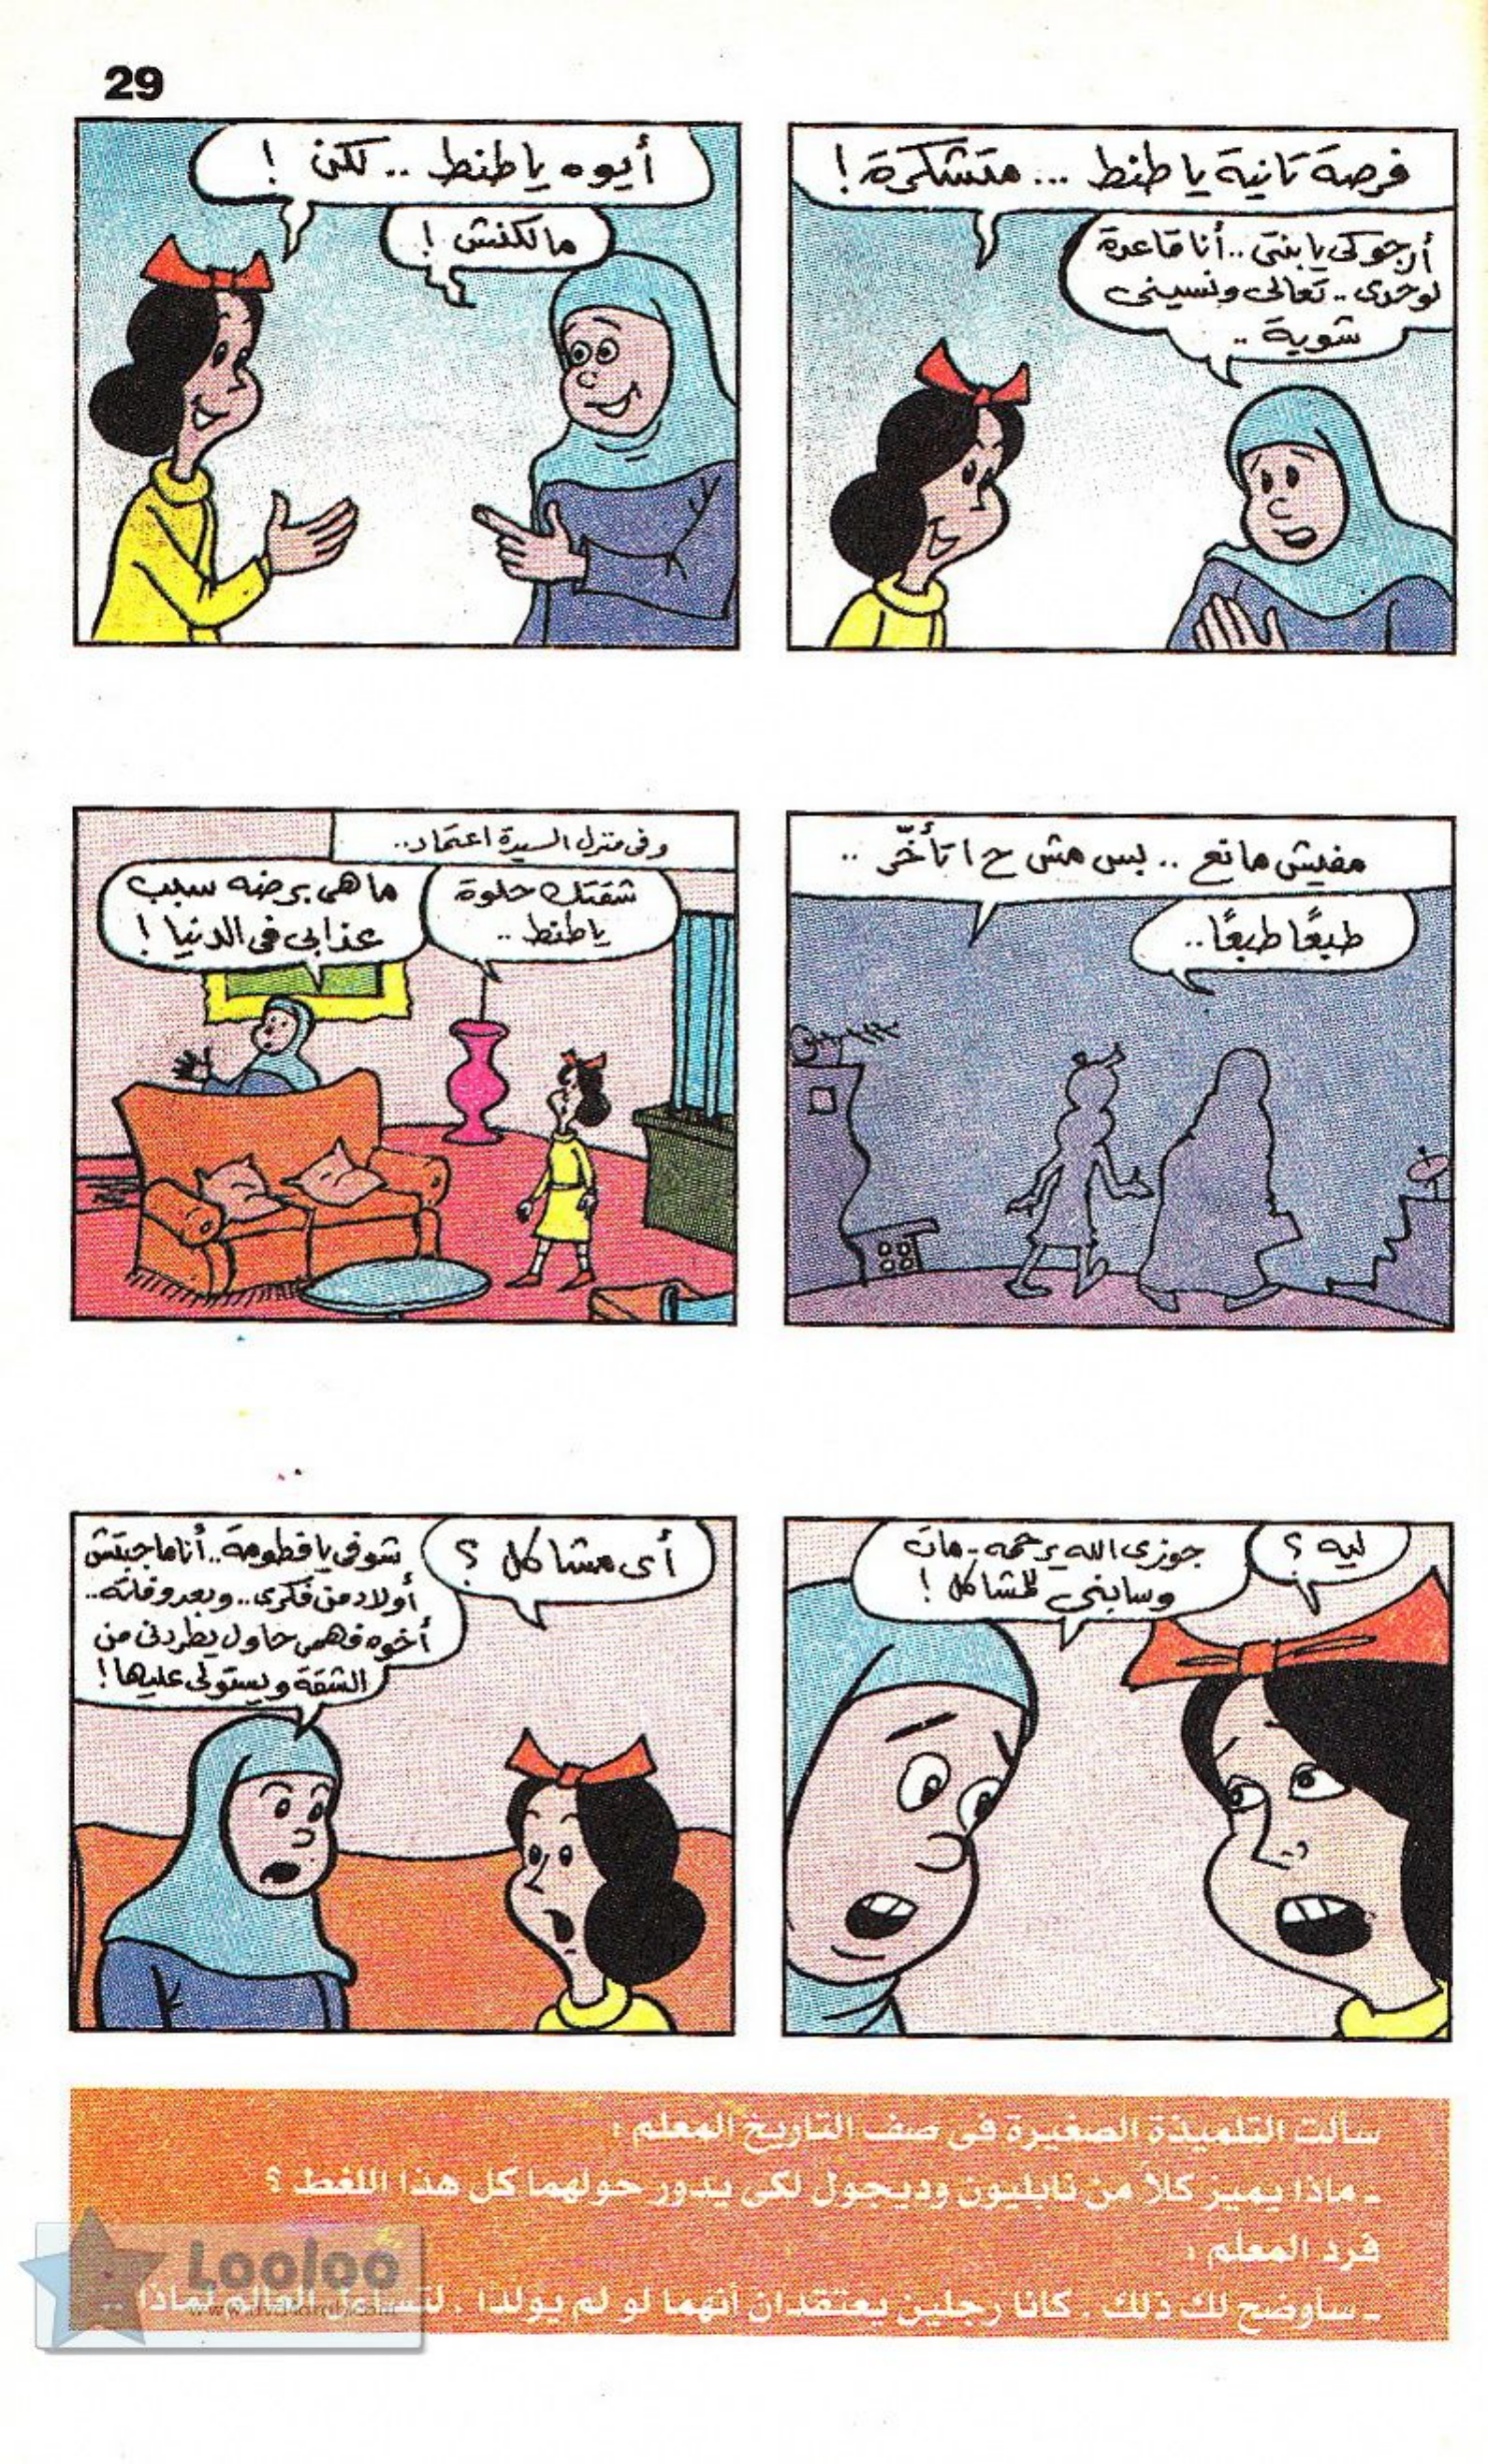 29
فرصة تانية يا طنط ... متشكرة !
أرجوكى يا بنتى .. أنا قاعدة
لوحدى .. تعالى ونسينى
شوية ..
أيوه يا طنط .. لكن !
مالكنش !
مفيش مانع .. بس مش ح اتأخّر ..
طبعًا طبعًا ..
وفى منزل السيدة اعتماد ..
شقتك حلوة
يا طنط ..
ما هى برضه سبب
عذابى فى الدنيا !
ليه ؟
جوزى الله يرحمه - مات
وسابنى للمشاكل !
أى مشاكل ؟
شوفى يا فطومة .. أنا ماجبتش
أولاد من فكرى .. وبعد وفاته ..
أخوه فهمى حاول يطردنى من
الشقة ويستولى عليها !
سألت التلميذة الصغيرة فى صف التاريخ المعلم :
- ماذا يميز كلاً من نابليون وديجول لكى يدور حولهما كل هذا اللغط ؟
فرد المعلم :
- سأوضح لك ذلك . كانا رجلين يعتقدان أنهما لو لم يولدا . العالم لماذا ..
Looloo
www.dvd4arab.com